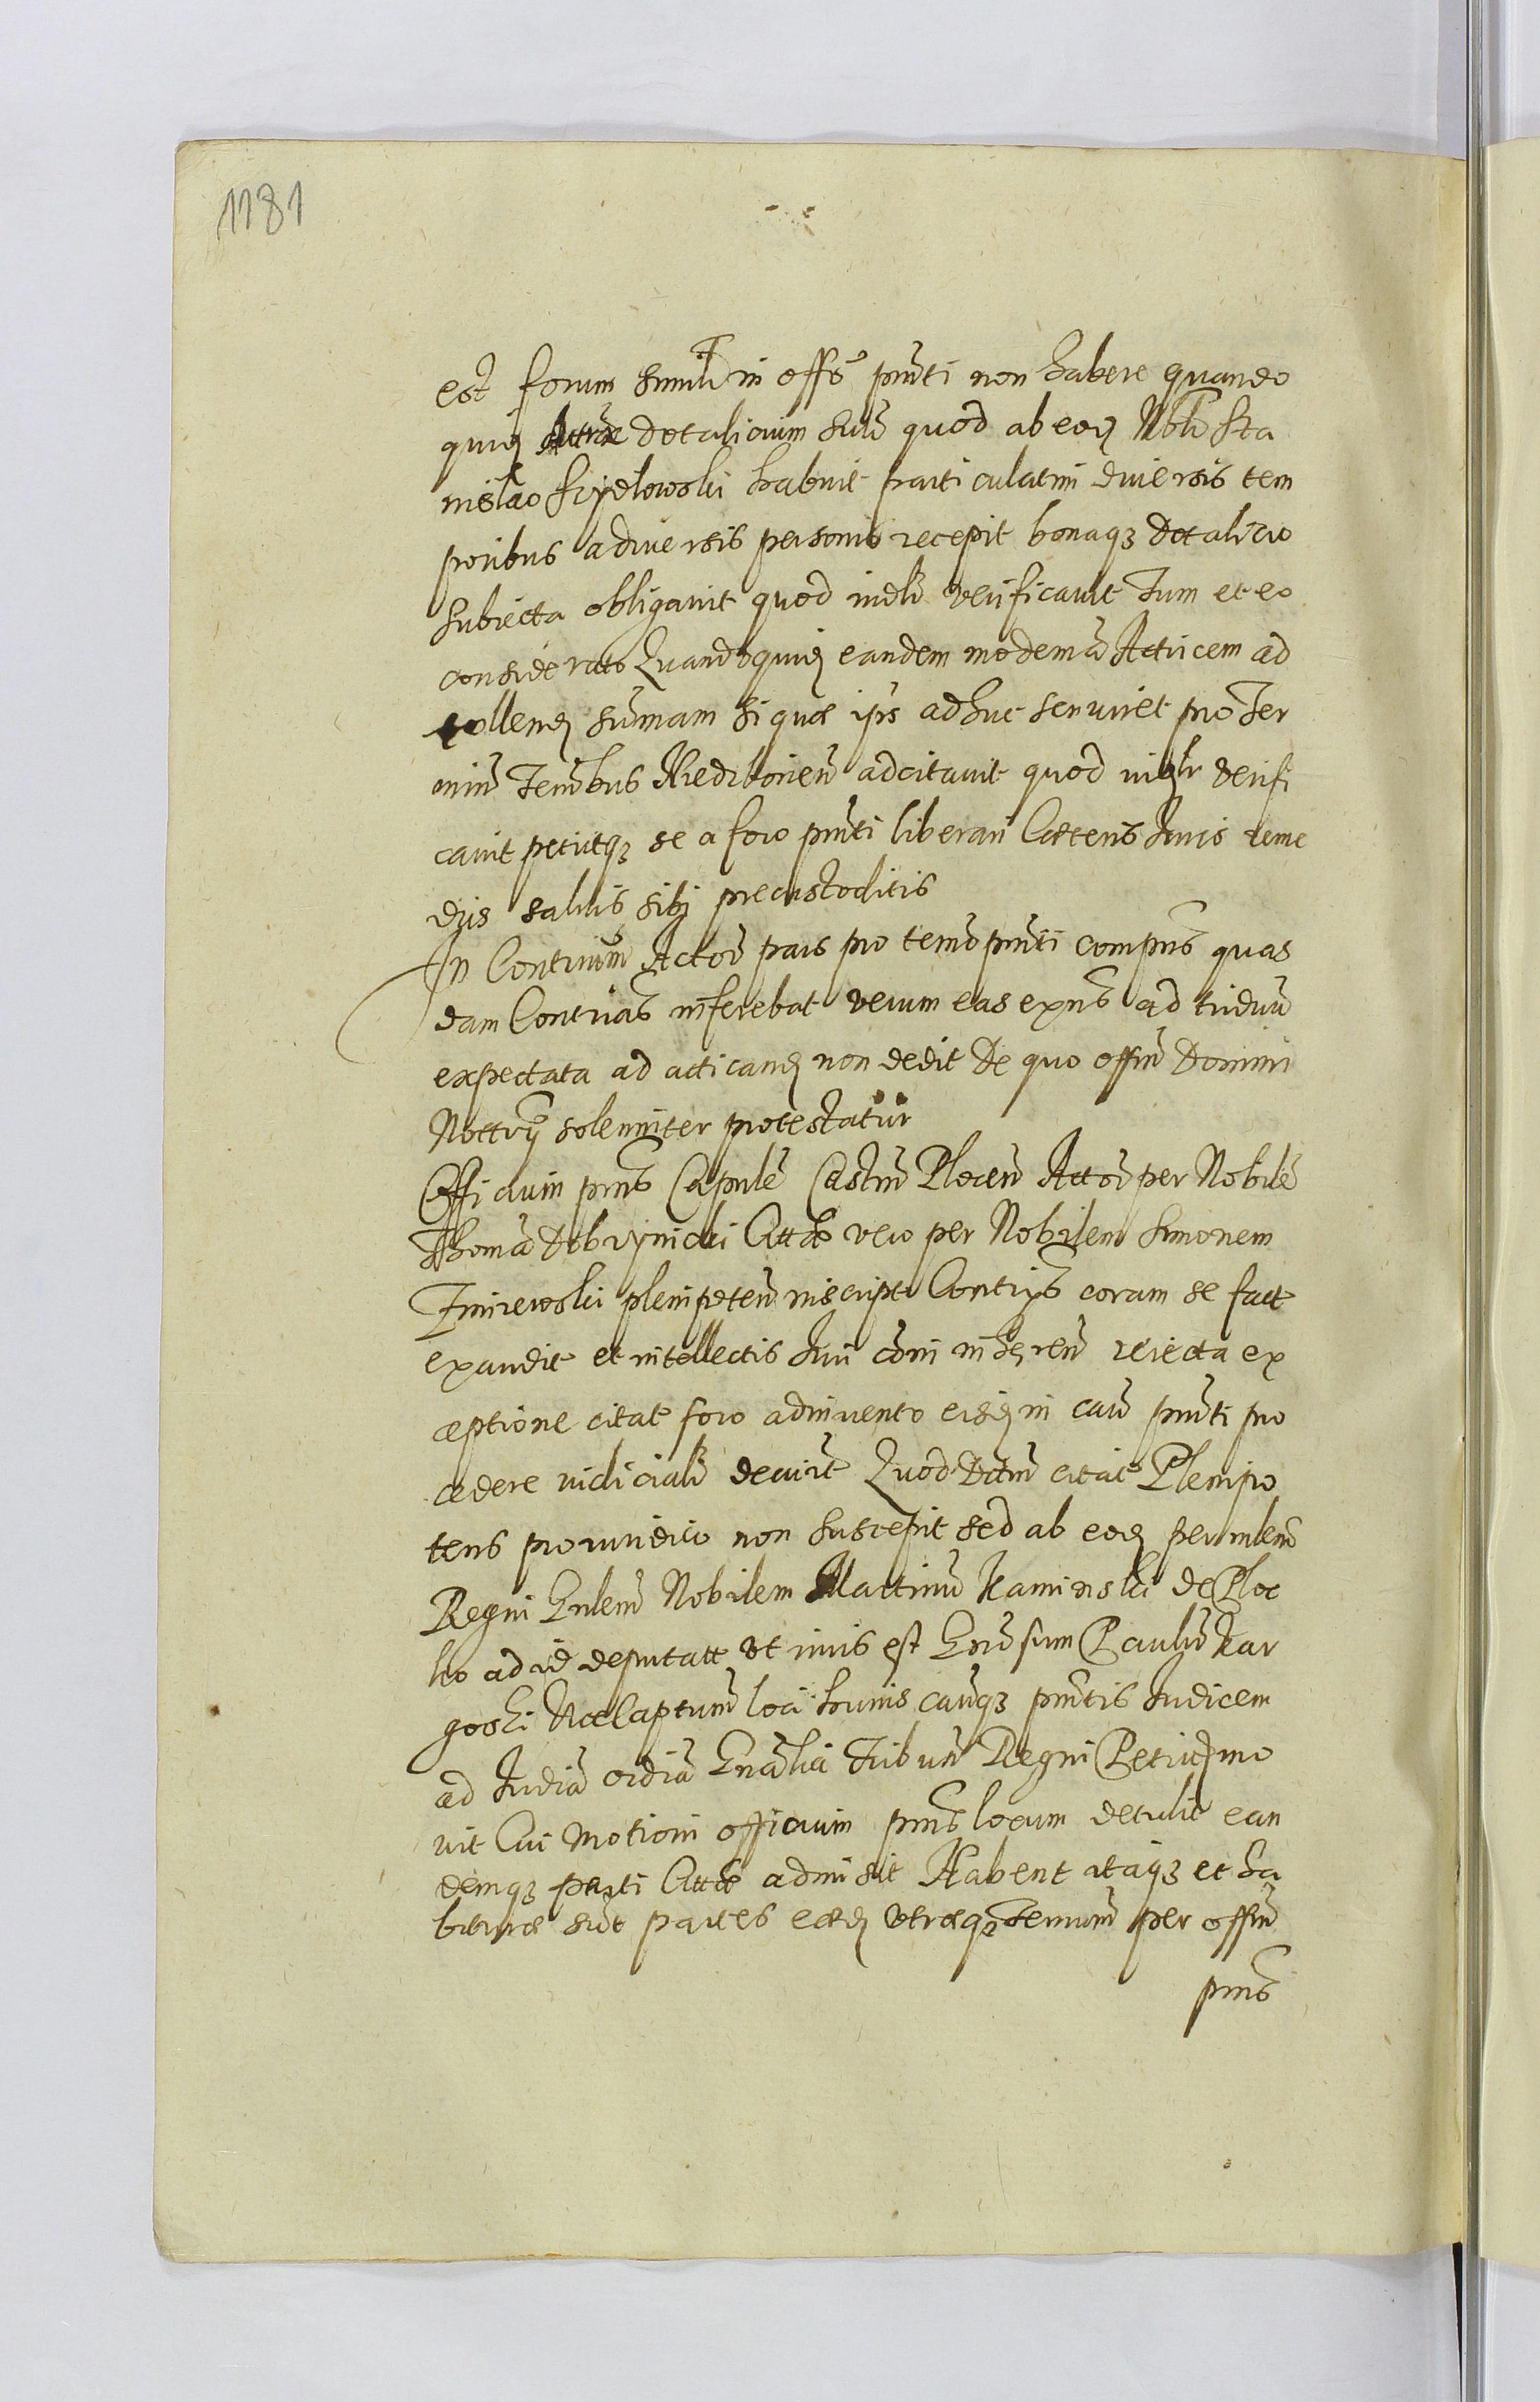 1181
est forum simili in offō pnti non habere quando
quiđ Actrix dotalicium suū quod ab eođ Nbli Sta
nislao Szydlowski habuit particulatim diversis tem
poribus a diversis personis recepit bonaqȝ dotalicio
subiecta obligavit quod iudlr verificavit Tum et eo
considerato Quandoquiđ eandem modernā Actricem ad
tollenđ sum̄am si quæ ipi adhuc serviret pro Ter
minū Tenēbus Kreditoriem adcitavit quod iudlr verifi
cavit petiitqȝ se a foro pnti liberari Cæteris Juris reme
dys salvis sibj precustoditis
In Contrium Actor pars pro termo pnti compns quas
dam Contrias inferebat verum eas expns ad triduū
expectata ad acticanđ non dedit De quo offm Domini
Nottrij solenniter protestatur
Officium pns Capnle Castrn Plocen Actore per Nobilē
Thomā Dobrzynicki Cittæ vero per Nobilem Simonem
Zmiiewski plenipeten inscript Contrijs coram se fact
exaudit et intellectis Juri cōni inhæren reiecta ex
ceptione citat foro adinvento eisđ in cau pnti pro
cedere iudicialr decrevit Quod Dctm citat Plenipo
tens pro iuridico non suscepit sed ab eođ per mlem
Regni Gnlem Nobilem Martinū Kaminski de Ploc
ko ad id deputatt ut iuris est Gnsum Paulū Kar
goski Vicecaptum loci huius causqȝ pntis Judicem
ad Judia ordia Gnalia Tribun Regni Petric mo
vit Cui motioni officium pns locum detulit ean
demqȝ parti Cittæ admisit Habent itaqȝ et ha
bituræ sūt partes eæđ utræqȝ Terminū per offm
pns